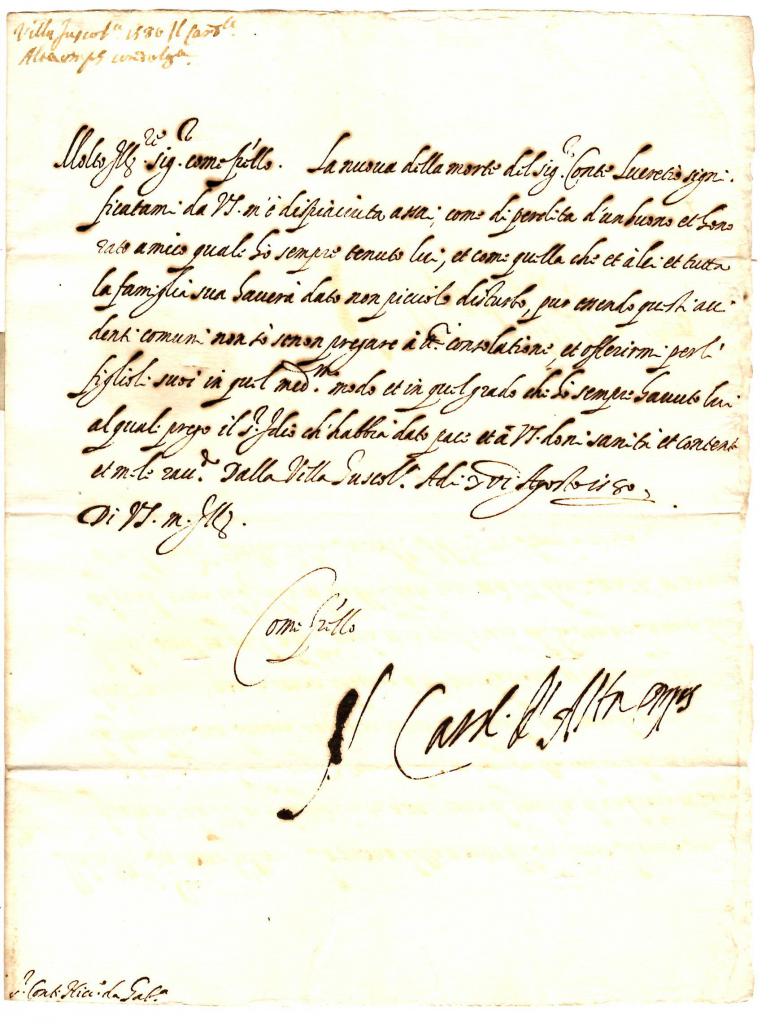 Villa Tuscolª 1580 Il Cardle
Altaemps condolga
Molto Illre sigr come fr̃ello. La nuova della morte del sigr Conte Lucretio signi
ficatami da VS. m'è dispiaciuta assai, come di perdita d'un buono et hono
rato amico quale hò sempre tenuto lui, et come quella che et à lei et tutta
la famiglia sua haverà dato non piccolo disturbo, pur essendo questi acci
denti comuni non sò se non pregare à consolatione, et offerirmi per li
figlioli suoi in quel medmo modo et in quel grado che hò sempre havuto lui
al quale prego il sr Idio ch'habbia dato pace et à VS. doni sanità et contento
et me le racdo. Dalla Villa Tuscolª. Adi XVI Agosto 1580
Di VS. m. Ill
Come fr̃ello
Il Card. d'Altaemps
sr Conte da Gabª